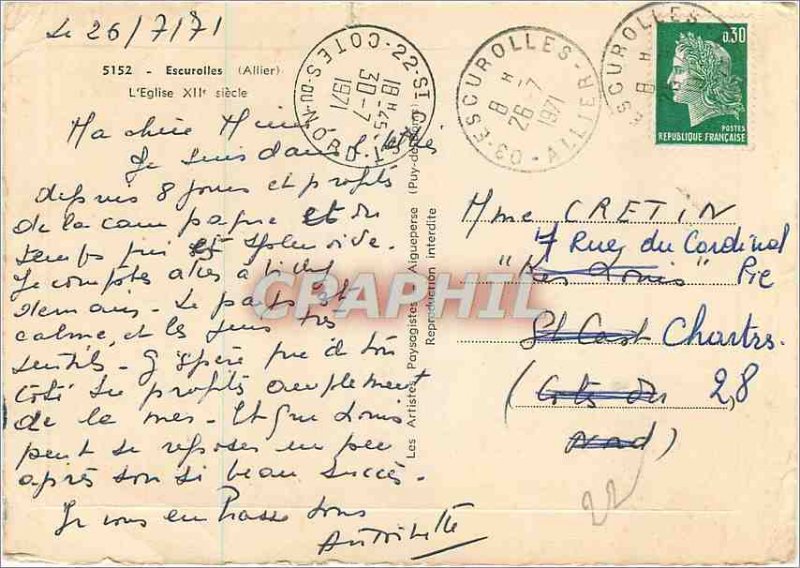 Le 26/7/71
5152 - Escurolles (Allier)
L'Eglise XIIe siècle
Ma chère Mimi
Je suis dans l'
depuis 8 jours et profite
de la campagne et du
temps qui est splendide.
Je compte aller à Vichy
demain. Le pays est
calme, et les gens très
gentils. J'espère que de ton
côté tu profites amplement
de la mer. Et que Louis
peut se reposer un peu
après son si beau succès.
Je vous embrasse tous
Antoinette
COTES-DU-NORD
22-ST CAST
18H45
30-7
1971
Les Artistes Paysagistes Aigueperse (Puy-de-Dôme)
Reproduction interdite
03-ESCUROLLES-ALLIER
8H
26-7
1971
ESCUROLLES
8H
0,30
POSTES
REPUBLIQUE FRANÇAISE
Mme CRETIN
7 Rue du Cardinal
"Les Louis" Pie
St Cast Chartres.
(Cotes du 28
Nord)
22
CPAPHIL